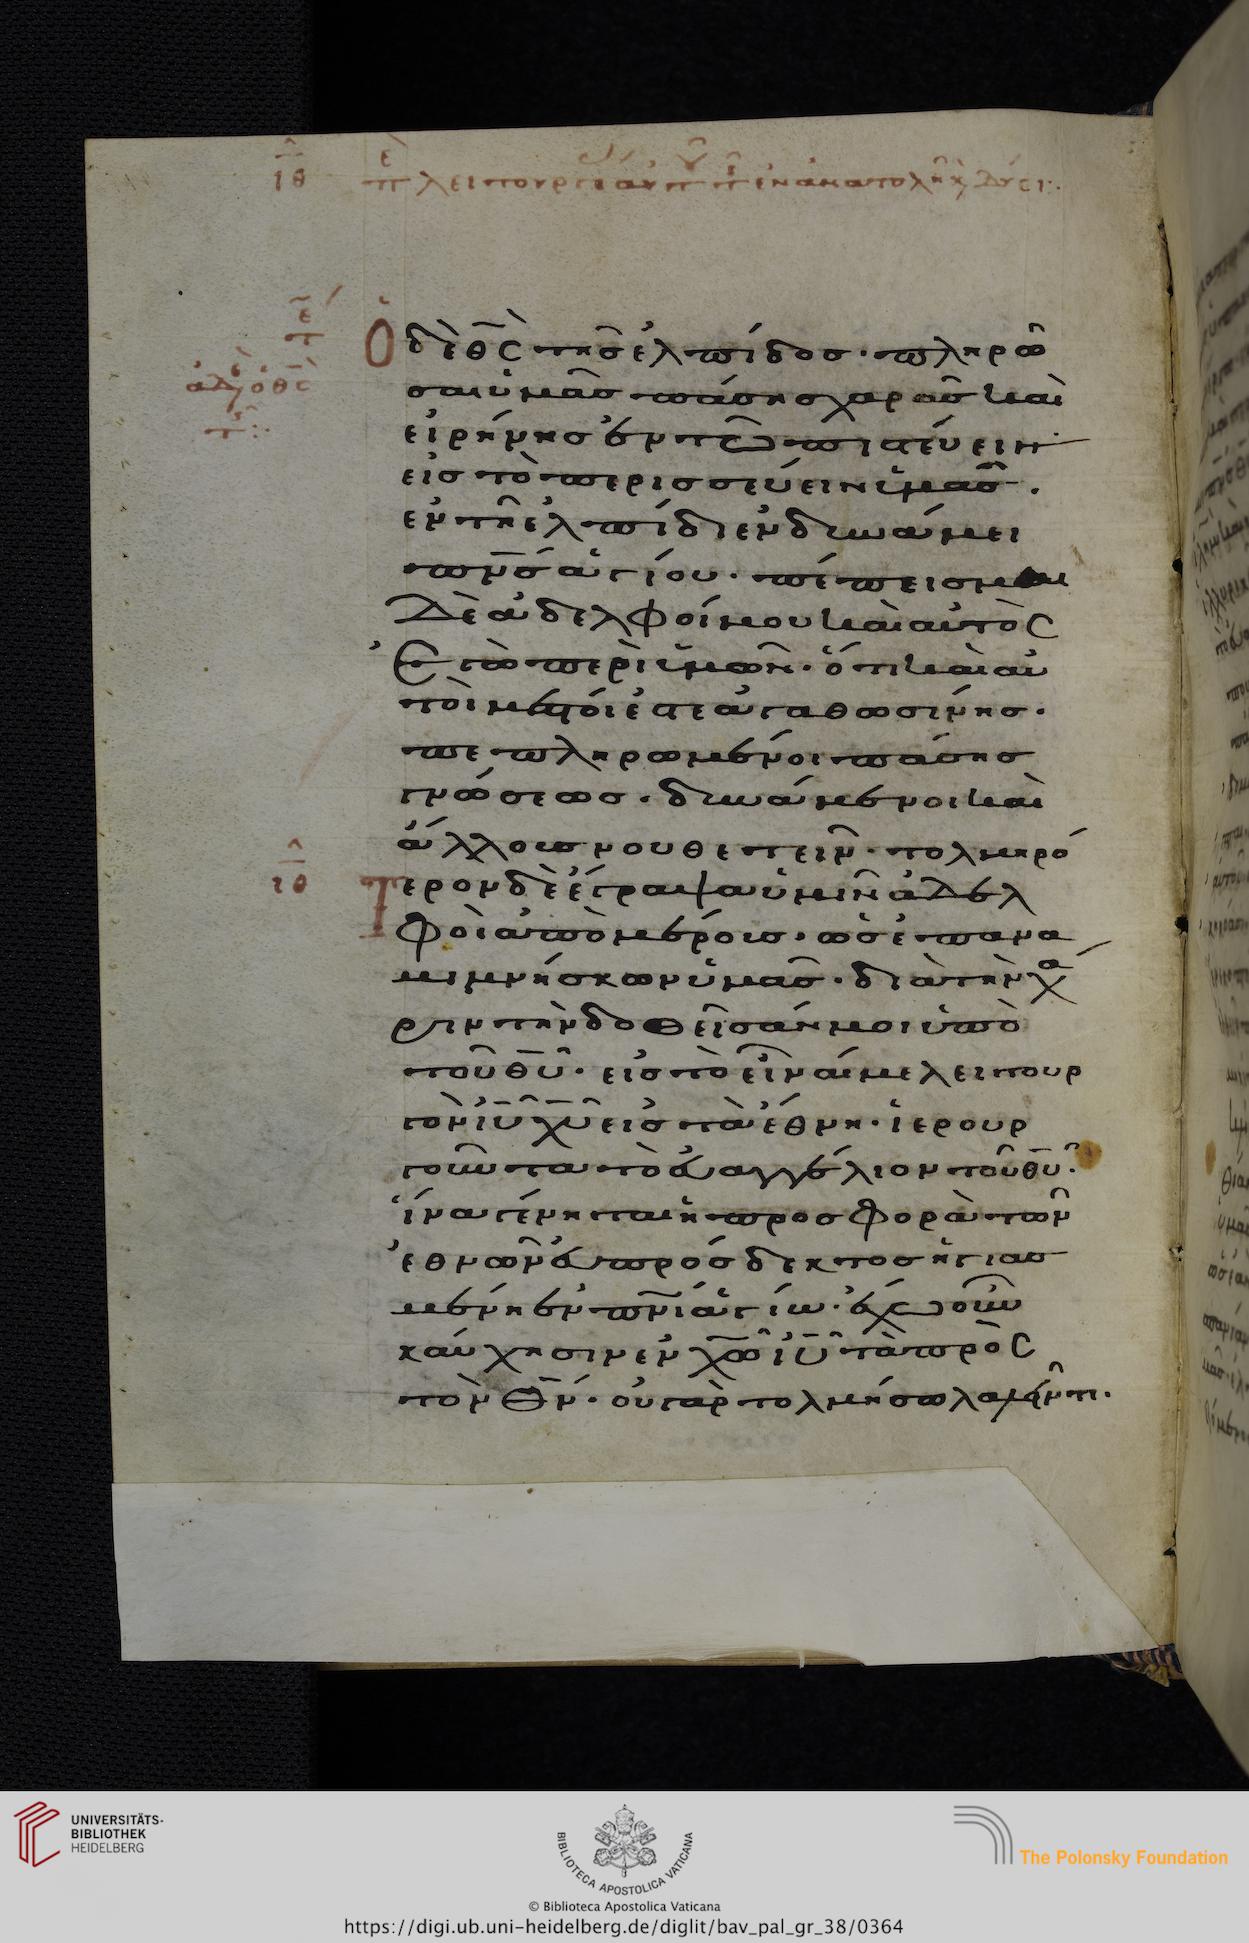 ιθ
Ὁ δὲ θς̅ τῆς ἐλπίδος· πληρώ
σαι ὑμᾶς πάσης χαρᾶς καὶ
εἰρήνης ἐν τῶ πιστεύειν·
εἰς τὸ περισσεύειν ὑμᾶς·
ἐν τῆ ἐλπίδι ἐν δυνάμει
πν̅ς ἁγίου· πέπεισμαι
δὲ ἀδελφοί μου καὶ αὐτὸς
ἐγὼ περὶ ὑμῶν· ὅτι καὶ αὐ
τοὶ μεστοί ἐστε ἀγαθωσύνης·
πεπληρωμένοι πάσης
γνώσεως· δυνάμενοι καὶ
ἄλλους νουθετεῖν· τολμηρό
ιθ
τερον δὲ ἔγραψα ὑμῖν ἀδελ
φοὶ ἀπὸ μέρους· ὡς ἐπανα
μιμνήσκων ὑμᾶς· διὰ τὴν χά
ριν τὴν δοθεῖσάν μοι ὑπὸ
τοῦ θυ̅· εἰς τὸ εἶναί με λειτουρ
γὸν ιυ̅ χυ̅ εἰς τὰ ἔθνη· ἱερουρ
γοῦντα τὸ εὐαγγέλιον τοῦ θυ̅·
ἵνα γένηται ἡ προσφορὰ τῶν
ἐθνῶν εὐπρόσδεκτος ἡγιασ
μένη ἐν πνι̅ ἁγίω· ἔχω οὖν
καύχησιν ἐν χω̅ ιυ̅ τὰ πρὸς
τὸν θν̅· οὐ γὰρ τολμήσω λαλεῖν τι·
UNIVERSITÄTS-
BIBLIOTHEK
HEIDELBERG
BIBLIOTECA APOSTOLICA VATICANA
The Polonsky Foundation
© Biblioteca Apostolica Vaticana
https://digi.ub.uni-heidelberg.de/diglit/bav_pal_gr_38/0364